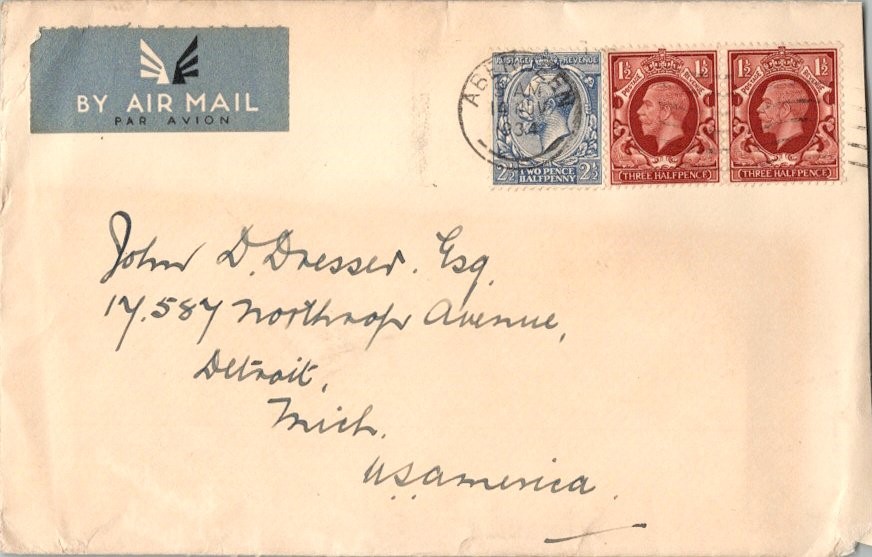 BY AIR MAIL
PAR AVION
ABERDEEN
AM
1934
POSTAGE REVENUE
2½ TWO PENCE HALFPENNY 2½
1½ 1½
POSTAGE REVENUE
THREE HALFPENCE
1½ 1½
POSTAGE REVENUE
THREE HALFPENCE
John D. Dresser. Esq.
17.587 Northrop Avenue,
Detroit,
Mich.
USAmerica.